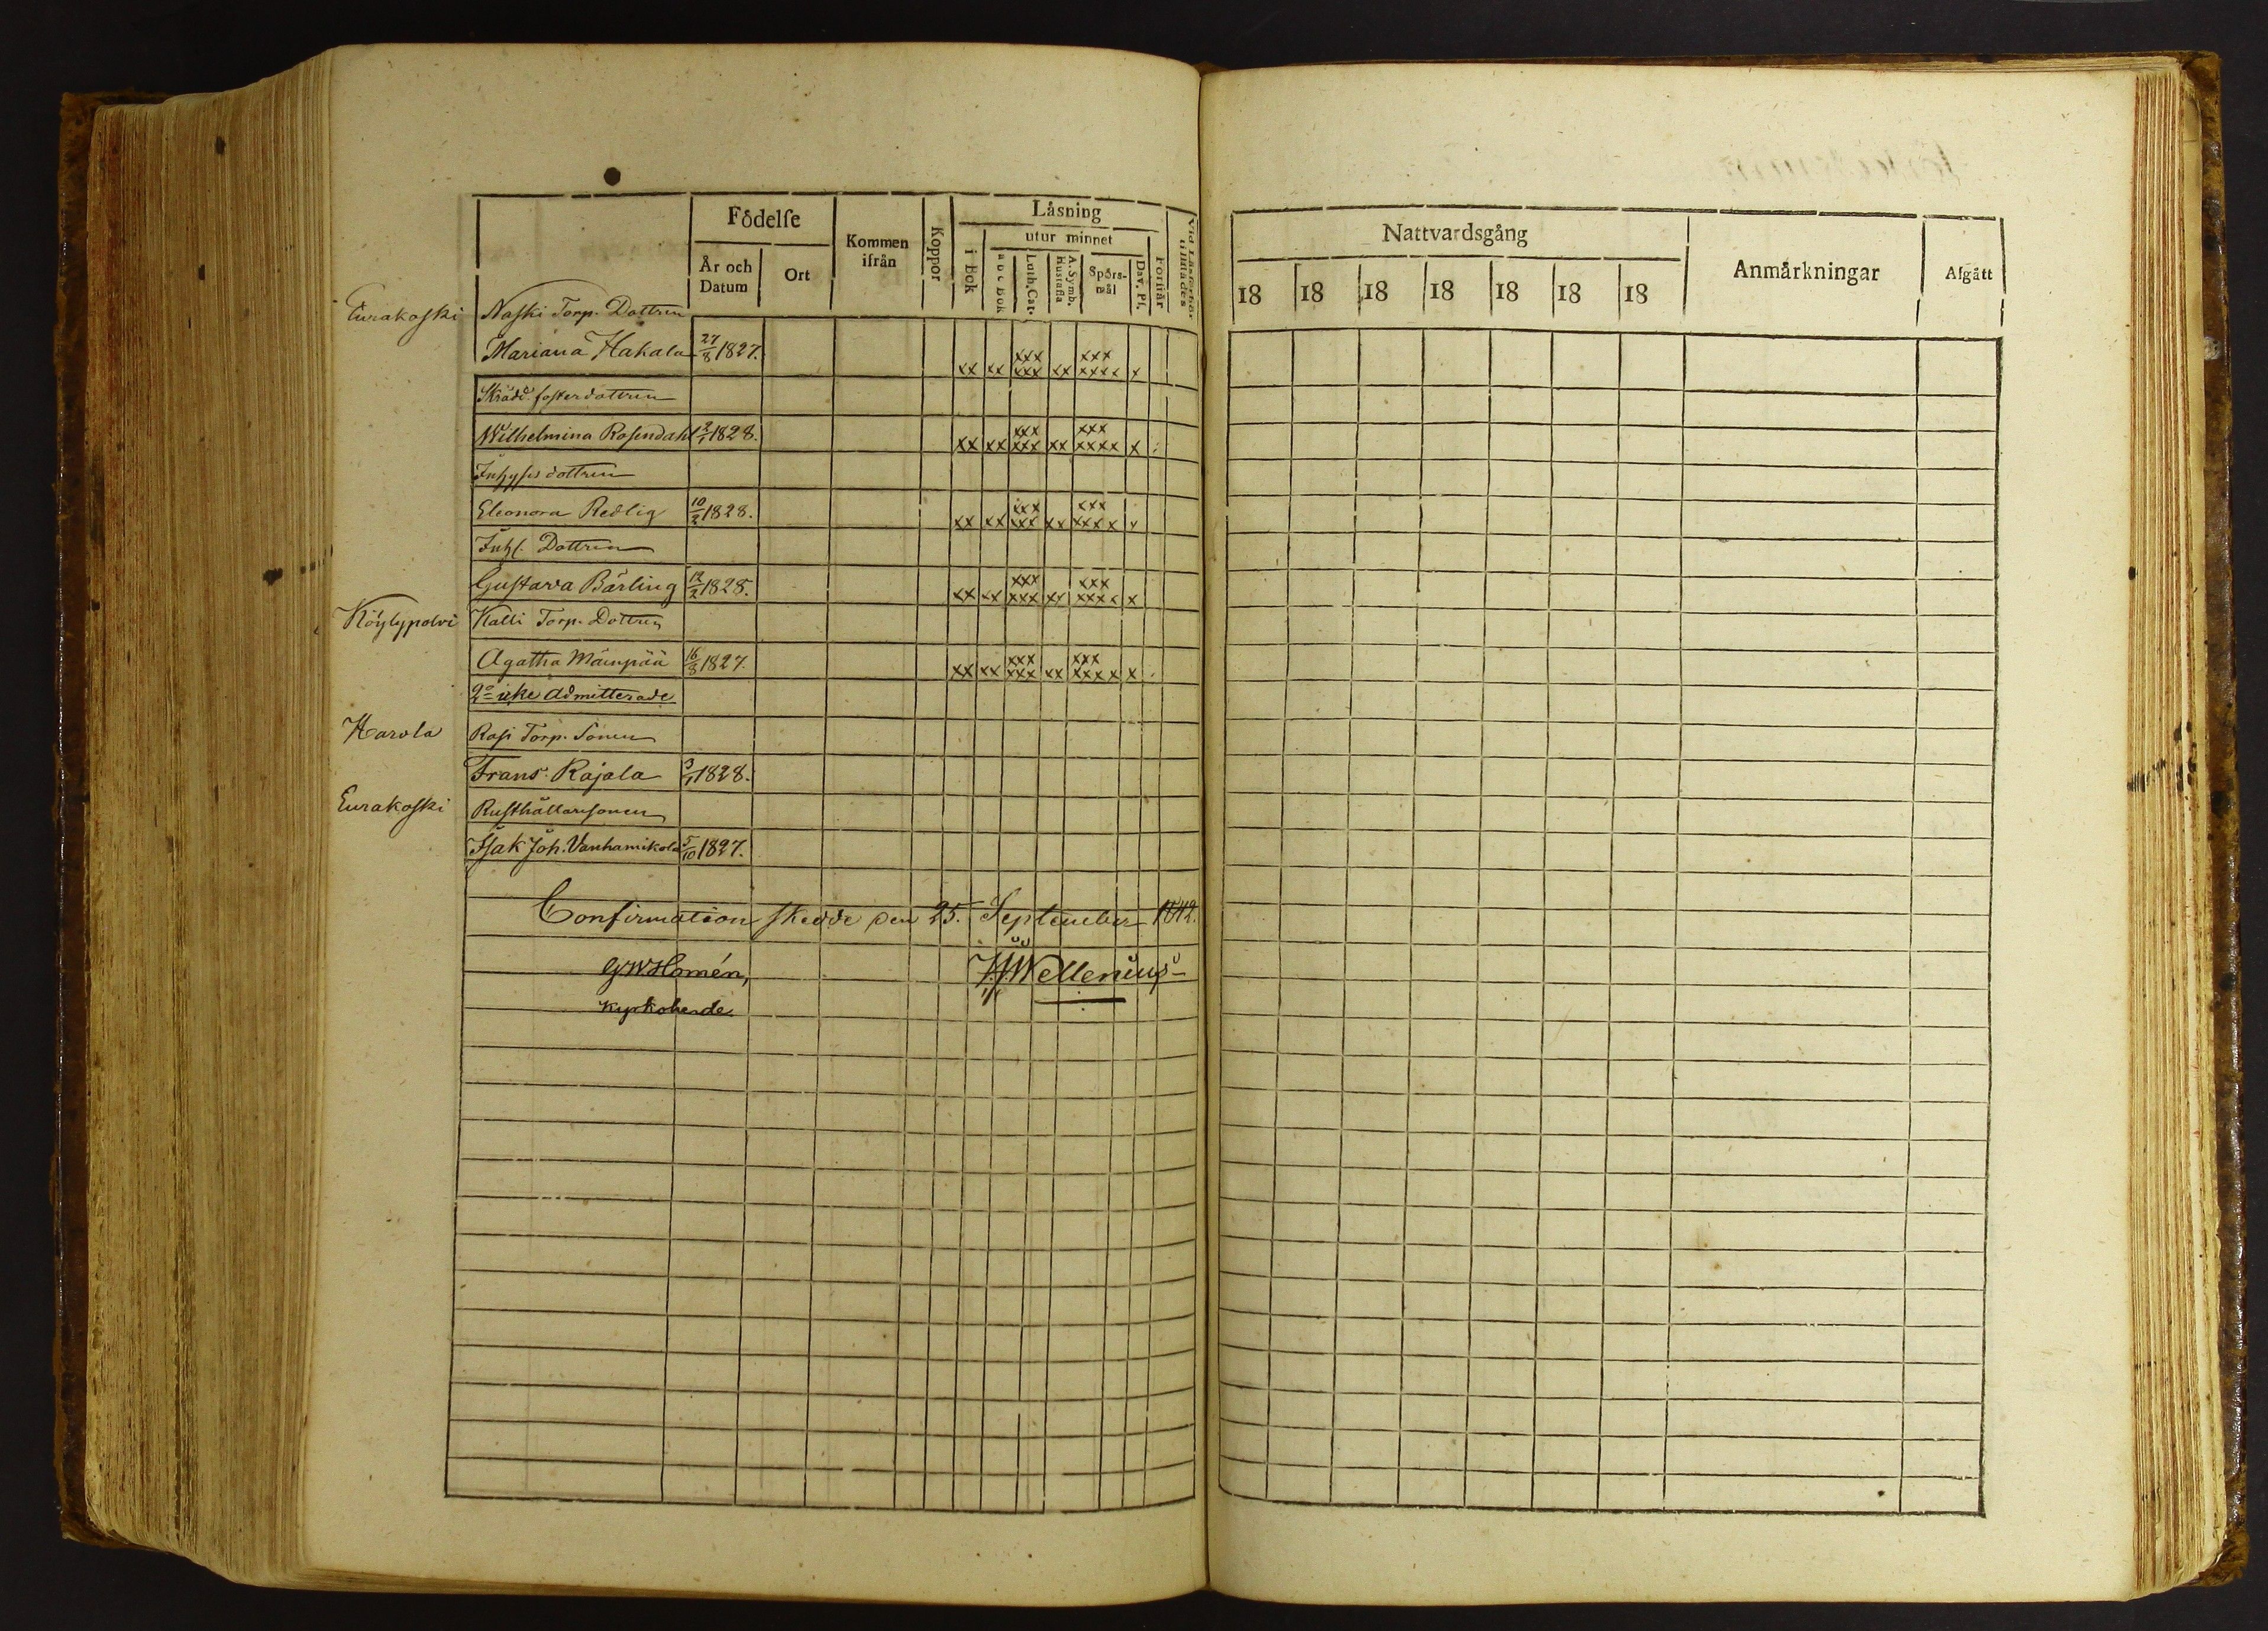 Födelse
Kommen ifrån
Koppor
Läsning
År och Datum
Ort
i Bok
utur minnet
a b c Bok
Luth. Cat.
A. Symb. Hustafla
Spörsmål
Dav. Ps.
Förstår
Nattvardsgång
Anmärkningar
Afgått
18 18 18 18 18 18 18
Eurakoski Naski Torp. Dottren
Mariana Hakala 27/8 1827. xx xx xxx xxx xx xxx xxxx x
Skrädd. fosterdottren
Wilhelmina Rosendahl 2/1 1828. xx xx xxx xxx xx xxx xxxx x
Inhyses dottren
Eleonora Redlig 10/2 1828. xx xx xxx xxx xx xxx xxxx x
Inhs. Dottren
Gustava Bärling 12/2 1828. xx xx xxx xxx xx xxx xxxx x
Köylypolvi Kalli Torp. Dottren
Agatha Mäenpää 16/8 1827. xx xx xxx xxx xx xxx xxxx x
2º icke admitterade
Harola Rasi Torp. Sonen
Frans Rajala 3/1 1828.
Eurakoski Rusthållaresonen
Isak Joh. Vanhamikola 5/10 1827.
Confirmation skedde den 25. September 1842.
GWHomén, Wellenius
Kyrkoherde